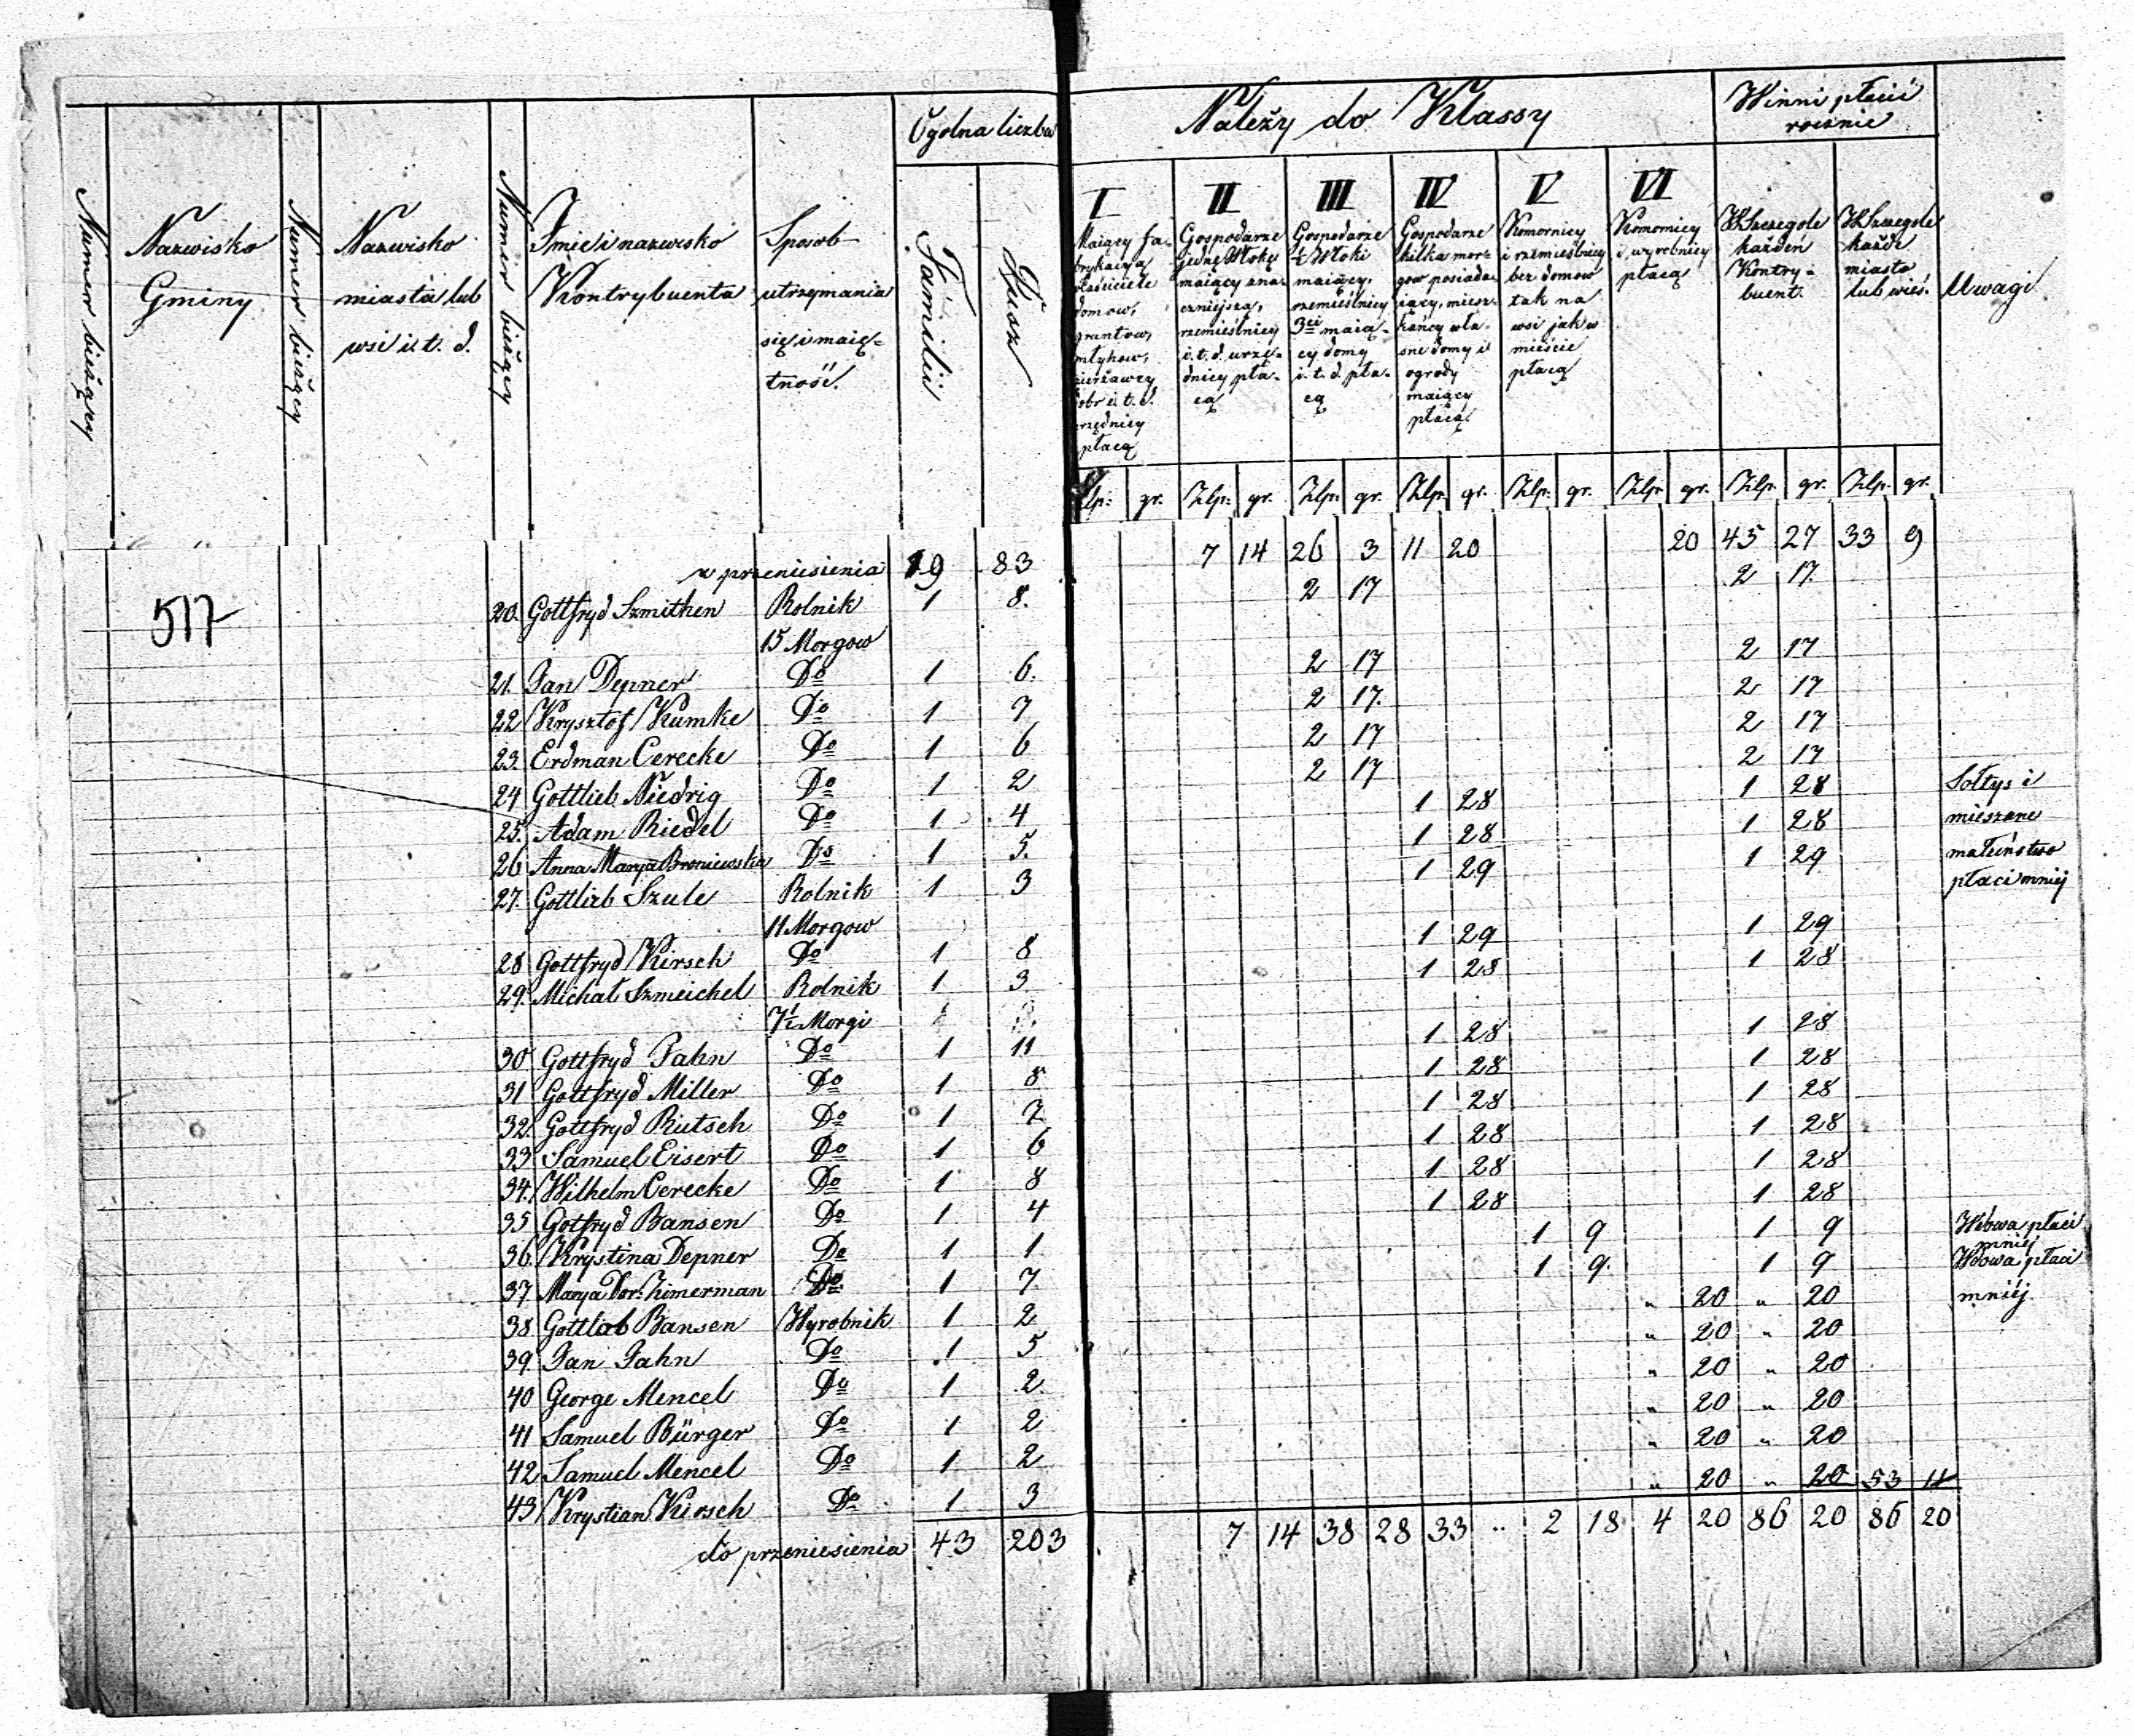 Numer bieżący
Nazwisko Gminy
Numer bieżący
Nazwisko miasta lub wsi i. t. d.
Numer bieżący
Imie i nazwisko Kontrybuenta
Sposob utrzymania się i maię=tność.
Ogolna liczba
Familii
Dusz
Należy do Klassy
Winni płacić rocznie
I
Maiący fa-
brykai są
właściciele
domow,
gruntow,
młynow,
dzierżawcy
dobr i. t. d.
urzędnicy
płacą
II
Gospodarze
jedną Włokę
maiący zna-
czniejszą,
rzemieślnicy
i. t. d. urzę-
dnicy pła-
cą
III
Gospodarze
½ Włoki
maiący,
rzemieślnicy
3ci maią-
cy domy
i. t. d. pła-
cą
IV
Gospodarze
kilka mor-
gow posiada-
iący, miesz-
kańcy wła-
sne domy i
ogrody
maiący
płacą
V
Komornicy
i rzemieślnicy
bez domow
tak na
wsi jak w
mieście
płacą
VI
Komornicy
i wyrobnicy
płacą
W Szczegole
każden
Kontry-
buent.
W Szczegole
każde
miasto
lub wieś.
Uwagi
Złp. gr. Złp. gr. Złp. gr. Złp. gr. Złp. gr. Złp. gr. Złp. gr. Złp. gr.
z przeniesienia 19 83 7 14 26 3 11 20 20 45 27 33 9
517
20. Gottfryd Szmithen Rolnik 1 8. 2 17 2 17.
15 Morgow
21. Jan Depner Do 1 6. 2 17 2 17
22 Krysztof Kumke Do 1 7 2 17. 2 17
23. Erdman Cerecke Do 1 6 2 17 2 17
24 Gottlieb Niedrig Do 1 2 2 17 2 17
25. Adam Riedel Do 1 4 1 28 1 28 Sołtys i
26 Anna Marya Broniewska Do 1 5. 1 28 1 28 mieszane
27. Gottlieb Szulc Rolnik 1 3 1 29 1 29 małeństwo
11 Morgow płaci mniej
28 Gottfryd Kirsch Do 1 8 1 29 1 29
29. Michał Szmeichel Rolnik 1 3 1 28 1 28
7½ Morgi
30 Gottfryd Jahn Do 1 11 1 28 1 28
31 Gottfryd Miller Do 1 8 1 28 1 28
32. Gottfryd Rutsch Do 1 7 1 28 1 28
33 Samuel Eisert Do 1 6 1 28 1 28
34. Wilhelm Cerecke Do 1 8 1 28 1 28
35 Gotfryd Bansen Do 1 4 1 28 1 28
36. Krystina Depner Do 1 1 1 9 1 9 Wdowa płaci mniej
37 Marya Dor: Zimerman Do 1 7 1 9. 1 9 Wdowa płaci
38 Gottlob Bansen Wyrobnik 1 2 " 20 " 20 mniéj
39. Jan Jahn Do 1 5 " 20 " 20
40 George Mencel Do 1 2 " 20 " 20
41 Samuel Bürger Do 1 2 " 20 " 20
42 Samuel Mencel Do 1 2 " 20 " 20
43 Krystian Kirsch Do 1 3 " 20 " 20 53 11
do przeniesienia 43 203 7 14 38 28 33 " 2 18 4 20 86 20 86 20